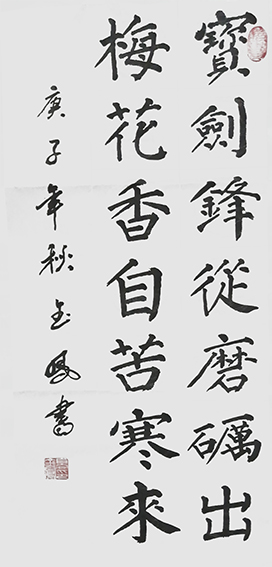 寶劍鋒從磨礪出
梅花香自苦寒來
庚子年秋書